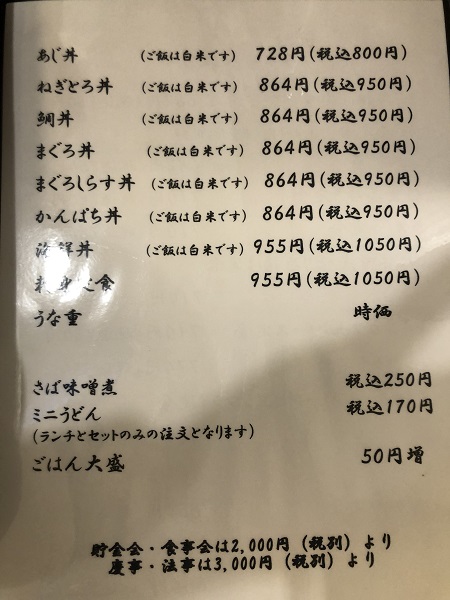 あじ丼 (ご飯は白米です) 728円(税込800円)
ねぎとろ丼 (ご飯は白米です) 864円(税込950円)
鯛丼 (ご飯は白米です) 864円(税込950円)
まぐろ丼 (ご飯は白米です) 864円(税込950円)
まぐろしらす丼 (ご飯は白米です) 864円(税込950円)
かんぱち丼 (ご飯は白米です) 864円(税込950円)
海鮮丼 (ご飯は白米です) 955円(税込1050円)
刺身定食 955円(税込1050円)
うな重 時価
さば味噌煮 税込250円
ミニうどん 税込170円
(ランチとセットのみの注文となります)
ごはん大盛 50円増
貯金会・食事会は2,000円(税別)より
慶事・法事は3,000円(税別)より